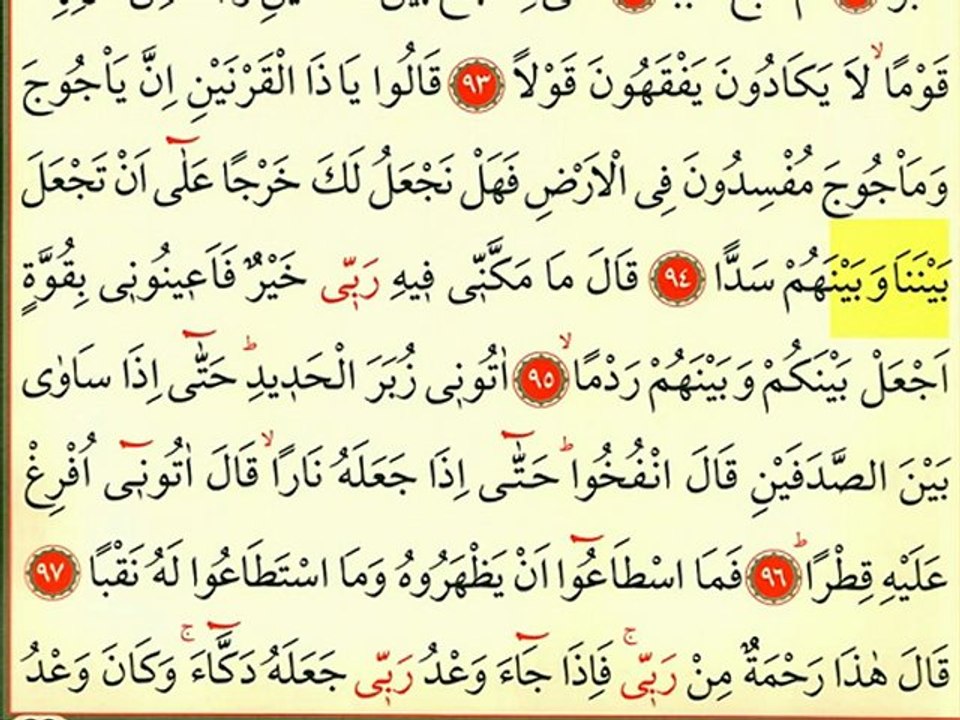 قَوْمًاۙ لَا يَكَادُونَ يَفْقَهُونَ قَوْلًا ﴿٩٣﴾ قَالُوا يَا ذَا الْقَرْنَيْنِ اِنَّ يَأْجُوجَ
وَمَأْجُوجَ مُفْسِدُونَ فِى الْاَرْضِ فَهَلْ نَجْعَلُ لَكَ خَرْجًا عَلٰٓى اَنْ تَجْعَلَ
بَيْنَنَا وَبَيْنَهُمْ سَدًّا ﴿٩٤﴾ قَالَ مَا مَكَّنّ۪ى ف۪يهِ رَبّ۪ى خَيْرٌ فَاَع۪ينُون۪ى بِقُوَّةٍ
اَجْعَلْ بَيْنَكُمْ وَبَيْنَهُمْ رَدْمًاۙ ﴿٩٥﴾ اٰتُون۪ى زُبَرَ الْحَد۪يدِۜ حَتّٰٓى اِذَا سَاوٰى
بَيْنَ الصَّدَفَيْنِ قَالَ انْفُخُواۜ حَتّٰٓى اِذَا جَعَلَهُ نَارًاۙ قَالَ اٰتُون۪ٓى اُفْرِغْ
عَلَيْهِ قِطْرًاۜ ﴿٩٦﴾ فَمَا اسْطَاعُٓوا اَنْ يَظْهَرُوهُ وَمَا اسْتَطَاعُوا لَهُ نَقْبًا ﴿٩٧﴾
قَالَ هٰذَا رَحْمَةٌ مِنْ رَبّ۪ىۚ فَاِذَا جَٓاءَ وَعْدُ رَبّ۪ى جَعَلَهُ دَكَّٓاءَۚ وَكَانَ وَعْدُ